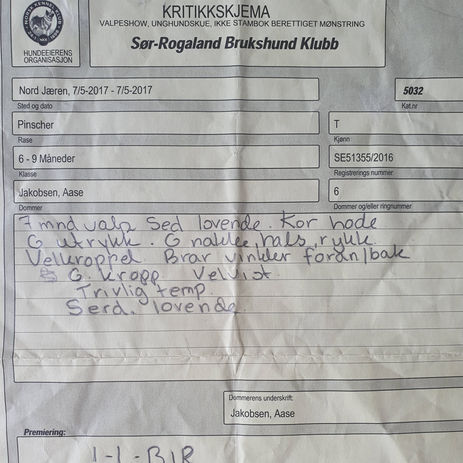 NORSK KENNEL KLUB
HUNDEEIERENS
ORGANISASJON
KRITIKKSKJEMA
VALPESHOW, UNGHUNDSKUE, IKKE STAMBOK BERETTIGET MØNSTRING
Sør-Rogaland Brukshund Klubb
Nord Jæren, 7/5-2017 - 7/5-2017
5032
Sted og dato
Kat.nr
Pinscher
T
Rase
Kjønn
6 - 9 Måneder
SE51355/2016
Klasse
Registrerings nummer
Jakobsen, Aase
6
Dommer
Dommer og/eller ringnummer
7 mnd valp Sed lovende. Kor hode
G utrykk. G nakke, hals, rykk
Velkroppet Brar vinkler foran/bak
G. kropp Velvist
Trivlig temp.
Serd. lovende
Dommerens underskrift:
Jakobsen, Aase
Premiering:
1-1-BIR